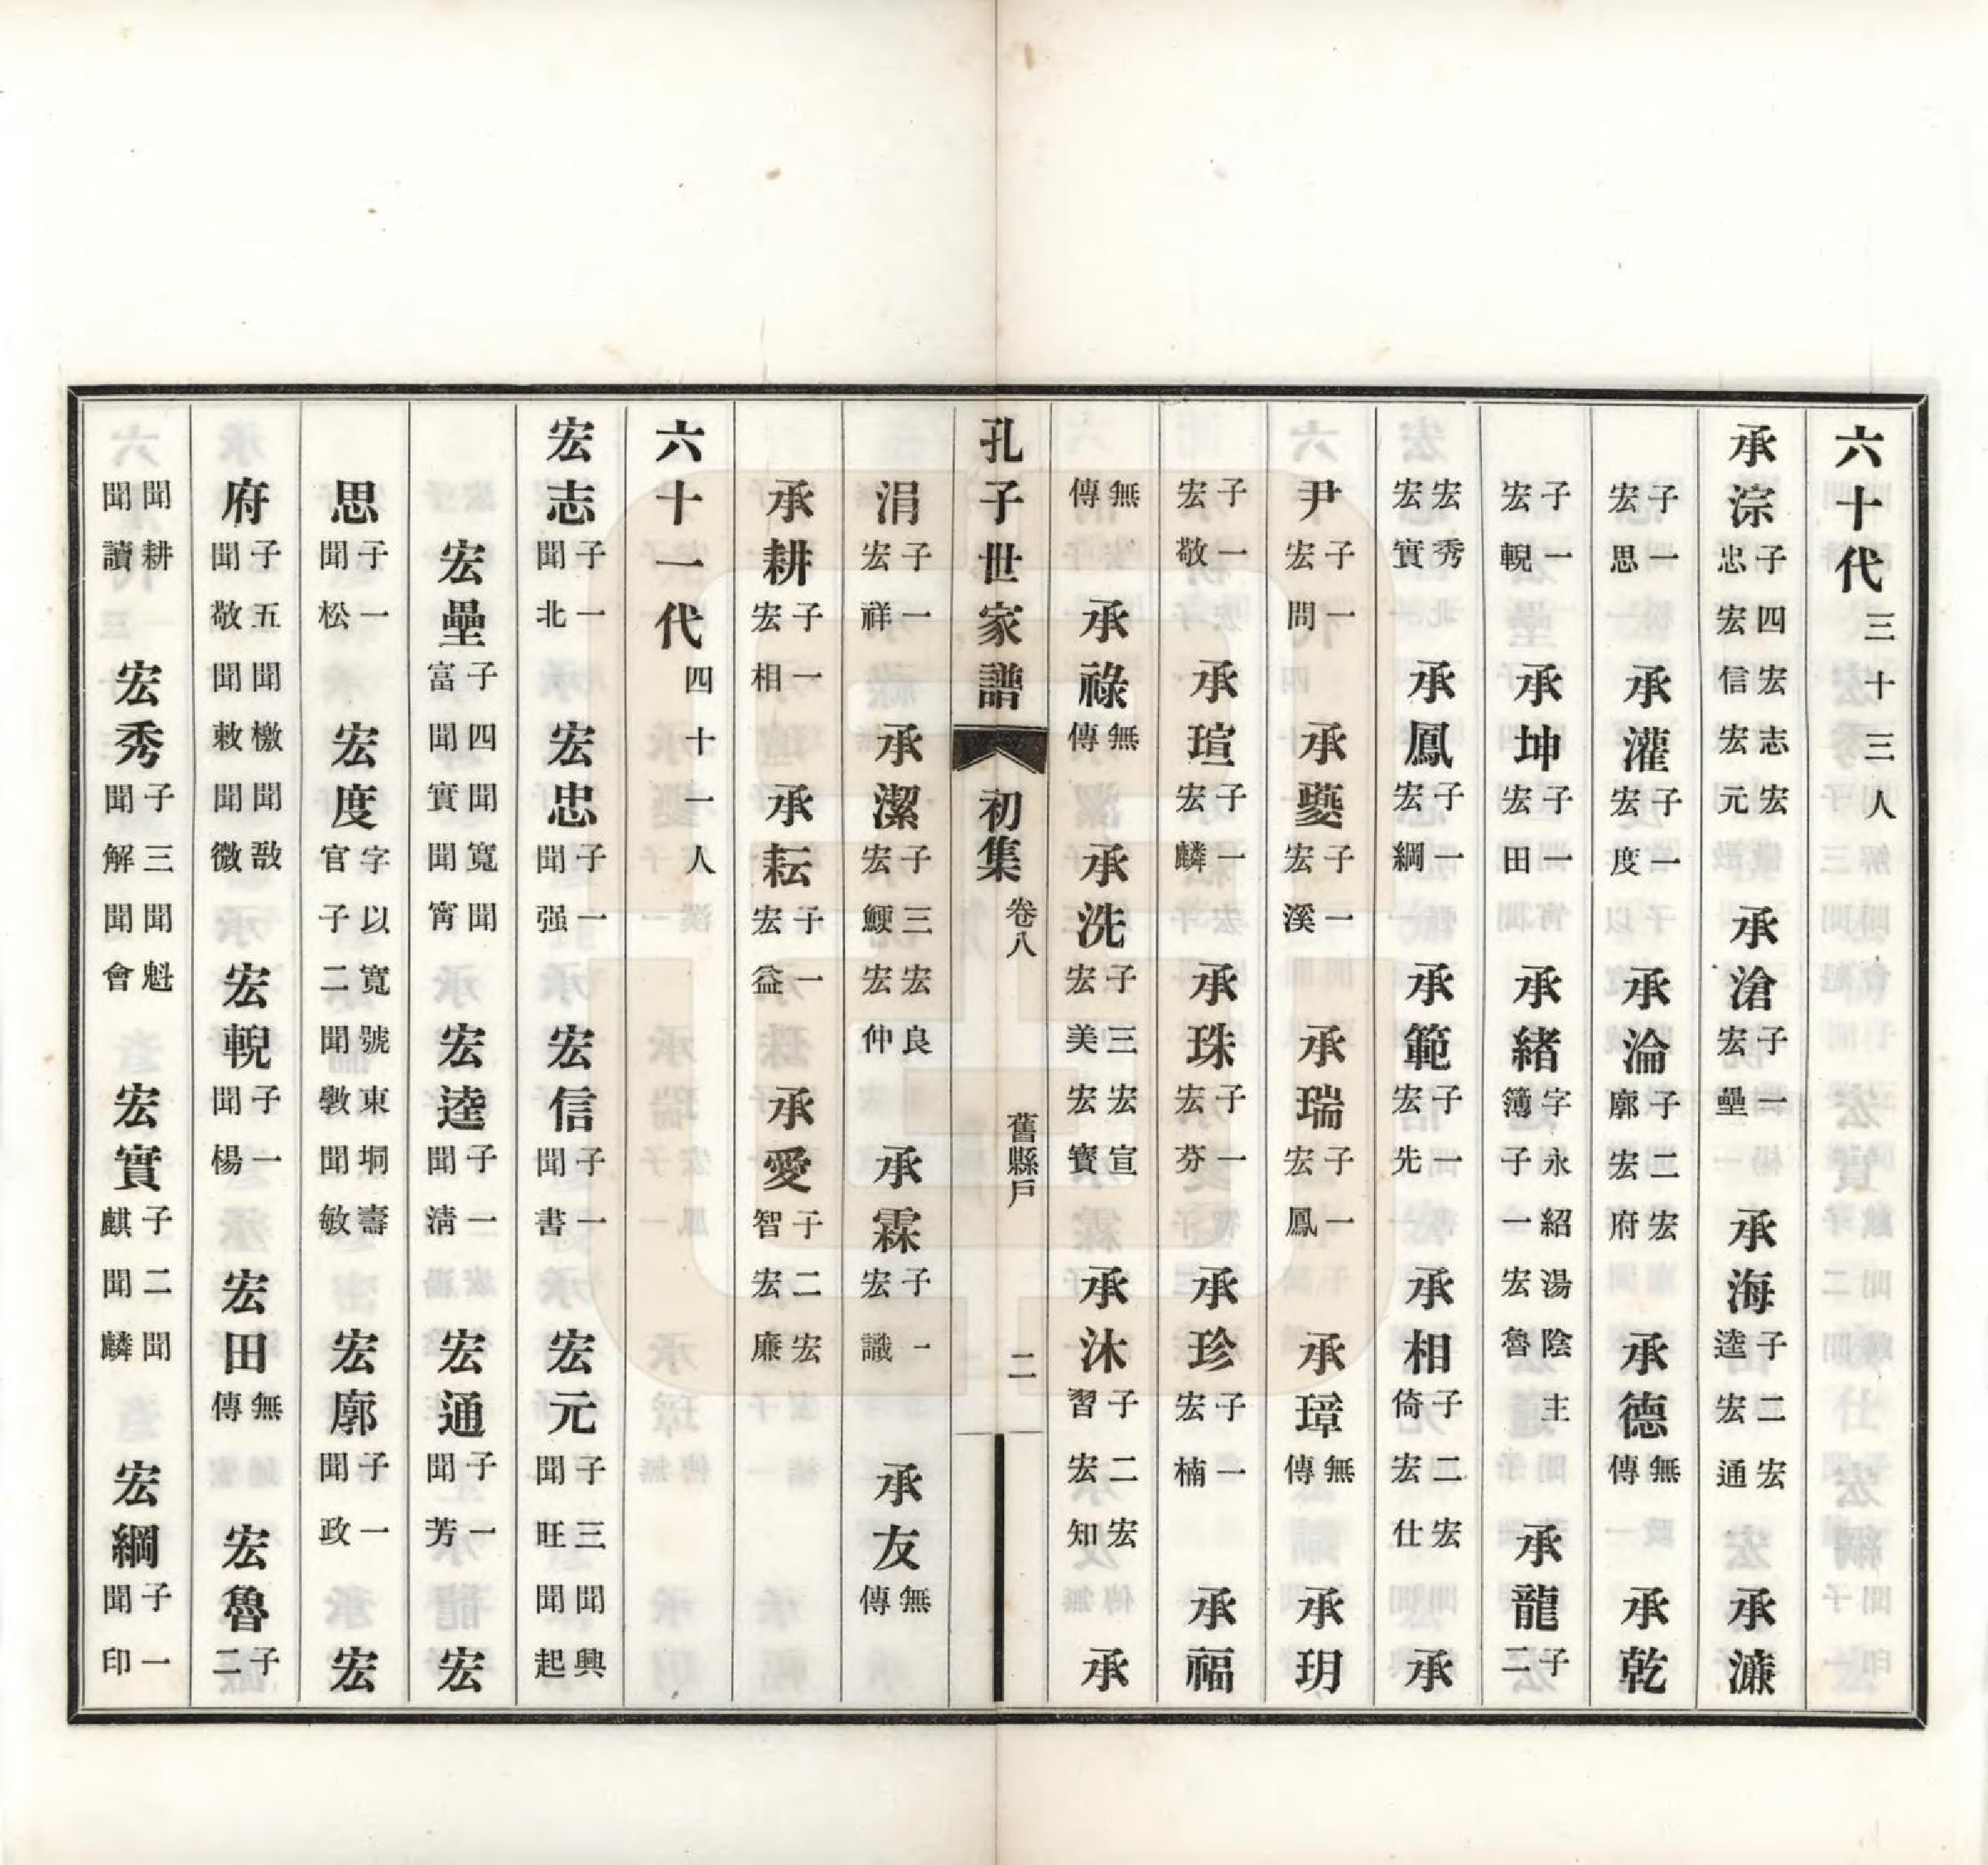 六十代三十三人
承淙子四宏志宏忠宏信宏元承滄子一宏壘承海子二宏逵宏通承濂
子一宏思承灌子一宏度承淪子二宏廓宏府承德無傳承乾
子一宏輗承坤子一宏田承緒字永紹湯陰主簿子一宏魯承龍子二
宏秀宏實承鳳子一宏綱承範子一宏先承相子二宏倚宏仕承
尹子一宏問承䕫子一宏溪承瑞子一宏鳳承璋無傳承玥
子一宏敬承瑄子一宏麟承珠子一宏芬承珍子一宏楠承福
無傳承祿無傳承洗子三宏宣宏美宏寶承沐子二宏習宏知承
孔子世家譜 初集 卷八 舊縣戶 二
涓子一宏祥承潔子三宏良宏鯁宏仲承霖子一宏識承友無傳
承耕子一宏相承耘子一宏益承愛子二宏智宏廉
六十一代四十一人
宏志子一聞北宏忠子一聞强宏信子一聞書宏元子三聞興聞旺聞起
宏壘子四聞寬聞富聞實聞寗宏逵子一聞清宏通子一聞芳宏
思子一聞松宏度字以寬號東垌壽官子二聞斆聞敏宏廓子一聞政宏
府子五聞檄聞敫聞敬聞敕聞微宏輗子一聞楊宏田無傳宏魯子二
聞耕聞讀宏秀子三聞魁聞解聞會宏實子二聞麒聞麟宏綱子一聞印